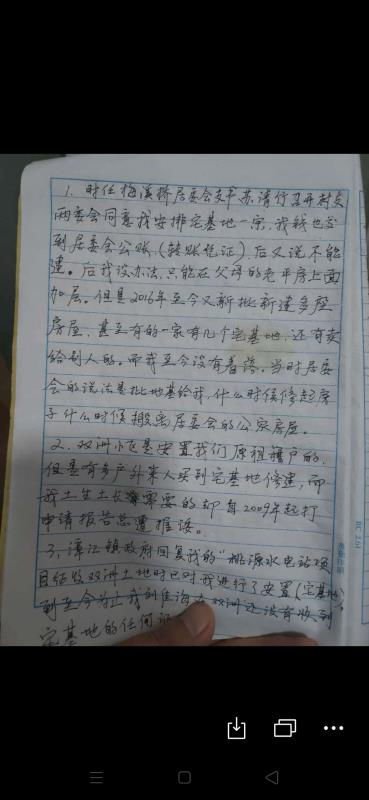 1. 时任梅溪桥居委会支书苏清行召开村支
两委会同意我安排宅基地一宗，我钱也交
到居委会公账（转账凭证），后又说不能
建。后我没办法，只能在父母的老平房上面
加层。但是2016年至今又新批新建多座
房屋，甚至有的一家有几个宅基地，还有卖
给别人的。而我至今没有着落。当时居委
会的说法是批地基给我，什么时候修起房
子什么时候搬离居委会的公家房屋。
2. 双洲小区是安置我们原祖籍户的，
但是有多户外来人买到宅基地修建，而
我土生土长需要的却自2009年起打
申请报告总遭推诿。
3. 漳江镇政府回复我的"桃源水电站项
目征收双洲土地时已对我进行了安置（宅基地），
到至今为止我们住海在双洲还没有收到
宅基地的任何